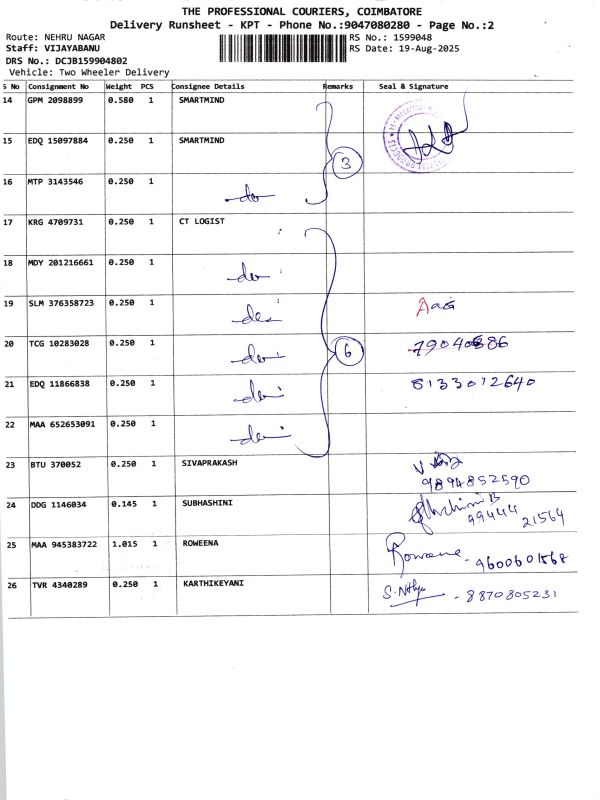 THE PROFESSIONAL COURIERS, COIMBATORE
Delivery Runsheet - KPT - Phone No.:9047080280 - Page No.:2
Route: NEHRU NAGAR
RS No.: 1599048
Staff: VIJAYABANU
RS Date: 19-Aug-2025
DRS No.: DCJB159904802
Vehicle: Two Wheeler Delivery
S No Consignment No Weight PCS Consignee Details Remarks Seal & Signature
14 GPM 2098899 0.580 1 SMARTMIND
15 EDQ 15097884 0.250 1 SMARTMIND
3
16 MTP 3143546 0.250 1 do
17 KRG 4709731 0.250 1 CT LOGIST
18 MDY 201216661 0.250 1 do
19 SLM 376358723 0.250 1 do
20 TCG 10283028 0.250 1 do 6
21 EDQ 11866838 0.250 1 do 8133012640
22 MAA 652653091 0.250 1 do
23 BTU 370052 0.250 1 SIVAPRAKASH
9894852590
24 DDG 1146034 0.145 1 SUBHASHINI
99444
21564
25 MAA 945383722 1.015 1 ROWEENA Roweena - 9600601568
26 TVR 4340289 0.250 1 KARTHIKEYANI S. Nithya - 8870805231